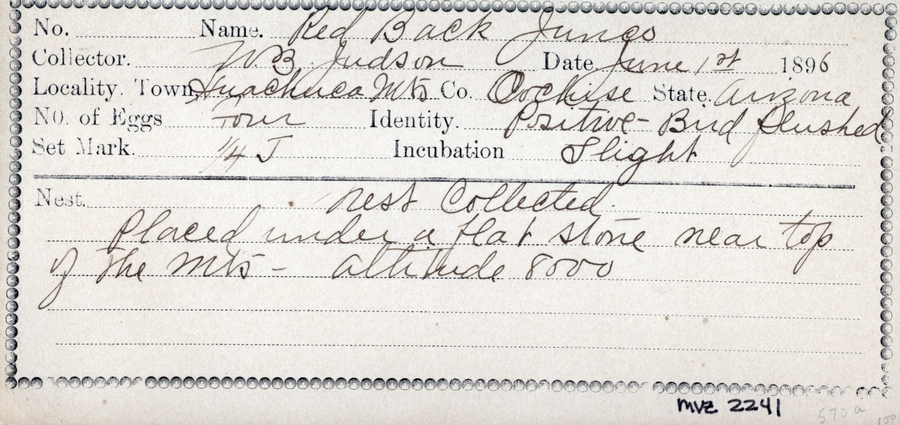 No. Name. Red Back Junco
Collector. W B Judson Date June 1st 1896
Locality. Town Huachuca Mts Co. Cochise State. Arizona
No. of Eggs Four Identity. Positive - Bird flushed
Set Mark. 1/4 J Incubation Slight
Nest. Nest Collected.
Placed under a flat stone near top
of the Mts - altitude 8000
mvz 2241
570a
100